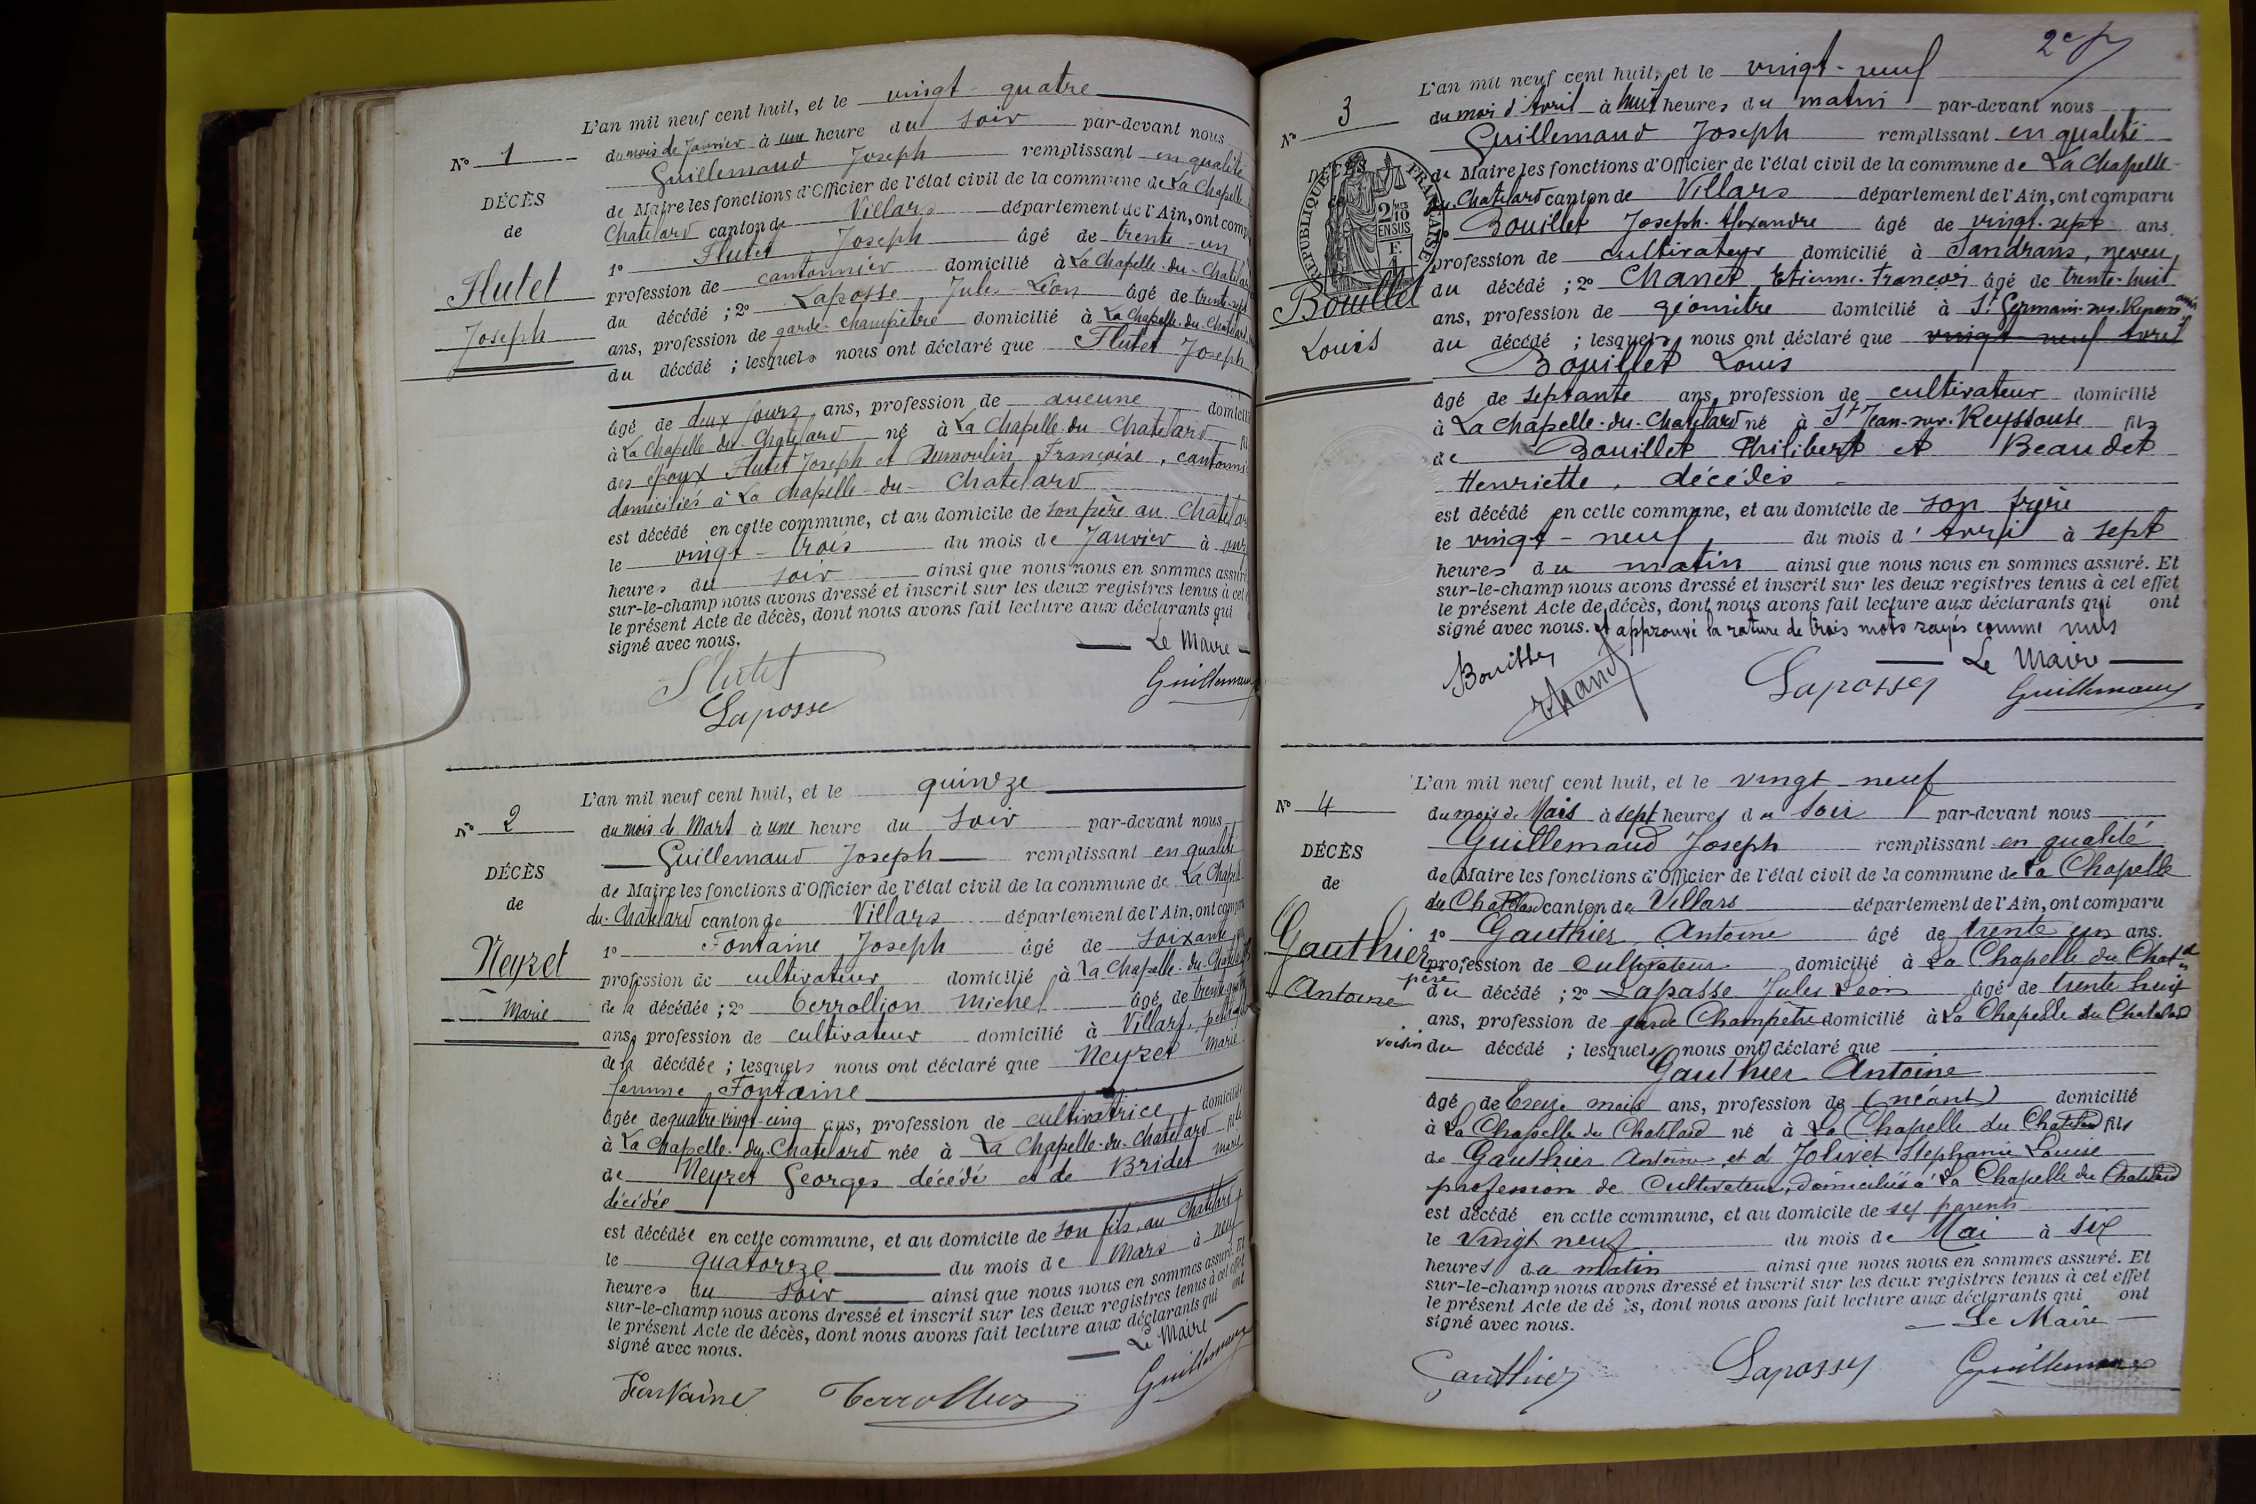 L'an mil neuf cent huit, et le vingt-quatre
du mois de Janvier à une heure du soir par-devant nous
Nº 1
Guillemaud Joseph remplissant en qualité
DÉCÈS
de Maire les fonctions d'Officier de l'état civil de la commune de La Chapelle
de
Chatelard canton de Villars département de l'Ain, ont comp
1º Flutet Joseph âgé de trente-un
Flutet
profession de cantonnier domicilié à La Chapelle-du-Chatelard
du décédé ; 2º Laposse Jules Léon âgé de trente-sept
Joseph
ans, profession de garde-champêtre domicilié à La Chapelle-du-Chatelard
du décédé ; lesquels nous ont déclaré que Flutet Joseph
âgé de deux jours ans, profession de aucune domicilié
à La Chapelle du Chatelard né à La Chapelle du Chatelard fils
des époux Flutet Joseph et Dumoulin Françoise, cantonni
domiciliés à La Chapelle-du-Chatelard
est décédé en cette commune, et au domicile de son père au Chatelard
le vingt-trois du mois de Janvier à onze
heures du soir ainsi que nous nous en sommes assuré
sur-le-champ nous avons dressé et inscrit sur les deux registres tenus à cet
le présent Acte de décès, dont nous avons fait lecture aux déclarants qui
signé avec nous.
Le Maire
Flutet
Guillemaud
Laposse
L'an mil neuf cent huit, et le quinze
Nº 2
du mois de Mars à une heure du soir par-devant nous
Guillemaud Joseph remplissant en qualité
DÉCÈS
de Maire les fonctions d'Officier de l'état civil de la commune de La Chapelle
de
du-Chatelard canton de Villars département de l'Ain, ont comparu
1º Fontaine Joseph âgé de soixante
Neyret
profession de cultivateur domicilié à La Chapelle-du-Chatelard
Marie
de la décédée ; 2º Terrollion Michel âgé de trente-quatre
ans, profession de cultivateur domicilié à Villars, petit-fils
de la décédée ; lesquels nous ont déclaré que Neyret Marie
femme Fontaine
âgée de quatre vingt-cinq ans, profession de cultivatrice, domiciliée
à La Chapelle-du-Chatelard née à La Chapelle-du-Chatelard fille
de Neyret Georges décédé et de Bridet Marie
décédée
est décédée en cette commune, et au domicile de son fils, au Chatelard
le quatorze du mois de Mars à neuf
heures du soir ainsi que nous nous en sommes assuré. Et
sur-le-champ nous avons dressé et inscrit sur les deux registres tenus à cet effet
le présent Acte de décès, dont nous avons fait lecture aux déclarants qui ont
signé avec nous.
Le Maire
Fontaine Terrollion Guillemaud
2e
L'an mil neuf cent huit, et le vingt-neuf
Nº 3
du mois d'Avril à huit heures du matin par-devant nous
Guillemaud Joseph remplissant en qualité
DÉCÈS
de Maire les fonctions d'Officier de l'état civil de la commune de La Chapelle-
RÉPUBLIQUE FRANÇAISE
2/10 EN SUS
du-Chatelard canton de Villars département de l'Ain, ont comparu
1º Bouillet Joseph-Alexandre âgé de vingt-sept ans.
profession de cultivateur domicilié à Sandrans, neveu
Bouillet
du décédé ; 2º Chanet Etienne-François âgé de trente-huit
ans, profession de géomètre domicilié à St Germain-sur-Renom ami
Louis
du décédé ; lesquels nous ont déclaré que vingt-neuf Avril
Bouillet Louis
âgé de septante ans, profession de cultivateur domicilié
à La Chapelle-du-Chatelard né à St Jean-sur-Reyssouse fils
de Bouillet Philibert et Beaudet
Henriette, décédés
est décédé en cette commune, et au domicile de son frère
le vingt-neuf du mois d'Avril à sept
heures du matin ainsi que nous nous en sommes assuré. Et
sur-le-champ nous avons dressé et inscrit sur les deux registres tenus à cet effet
le présent Acte de décès, dont nous avons fait lecture aux déclarants qui ont
signé avec nous. et approuvé la rature de trois mots rayés comme nuls
Le Maire
Bouillet Chanet Laposse Guillemaud
L'an mil neuf cent huit, et le vingt neuf
Nº 4
du mois de Mais à sept heures du soir par-devant nous
Guillemaud Joseph remplissant en qualité
DÉCÈS
de Maire les fonctions d'Officier de l'état civil de la commune de La Chapelle
de
du Chatelard canton de Villars département de l'Ain, ont comparu
1º Gauthier Antoine âgé de trente un ans.
Gauthier
profession de Cultivateur domicilié à La Chapelle du Chatd
Antoine
père du décédé ; 2º Laposse Jules Léon âgé de trente huit
ans, profession de garde Champêtre domicilié à La Chapelle du Chatelard
voisin du décédé ; lesquels nous ont déclaré que
Gauthier Antoine
âgé de treize mois ans, profession de (néant) domicilié
à La Chapelle du Chatelard né à La Chapelle du Chatelard fils
de Gauthier Antoine et d Jolivet Stéphanie Louise
profession de Cultivateur, domiciliés à La Chapelle du Chatelard
est décédé en cette commune, et au domicile de ses parents
le vingt neuf du mois de Mai à six
heures du matin ainsi que nous nous en sommes assuré. Et
sur-le-champ nous avons dressé et inscrit sur les deux registres tenus à cet effet
le présent Acte de dé ès, dont nous avons fait lecture aux déclarants qui ont
signé avec nous.
Le Maire
Gauthier Laposse Guillemaud